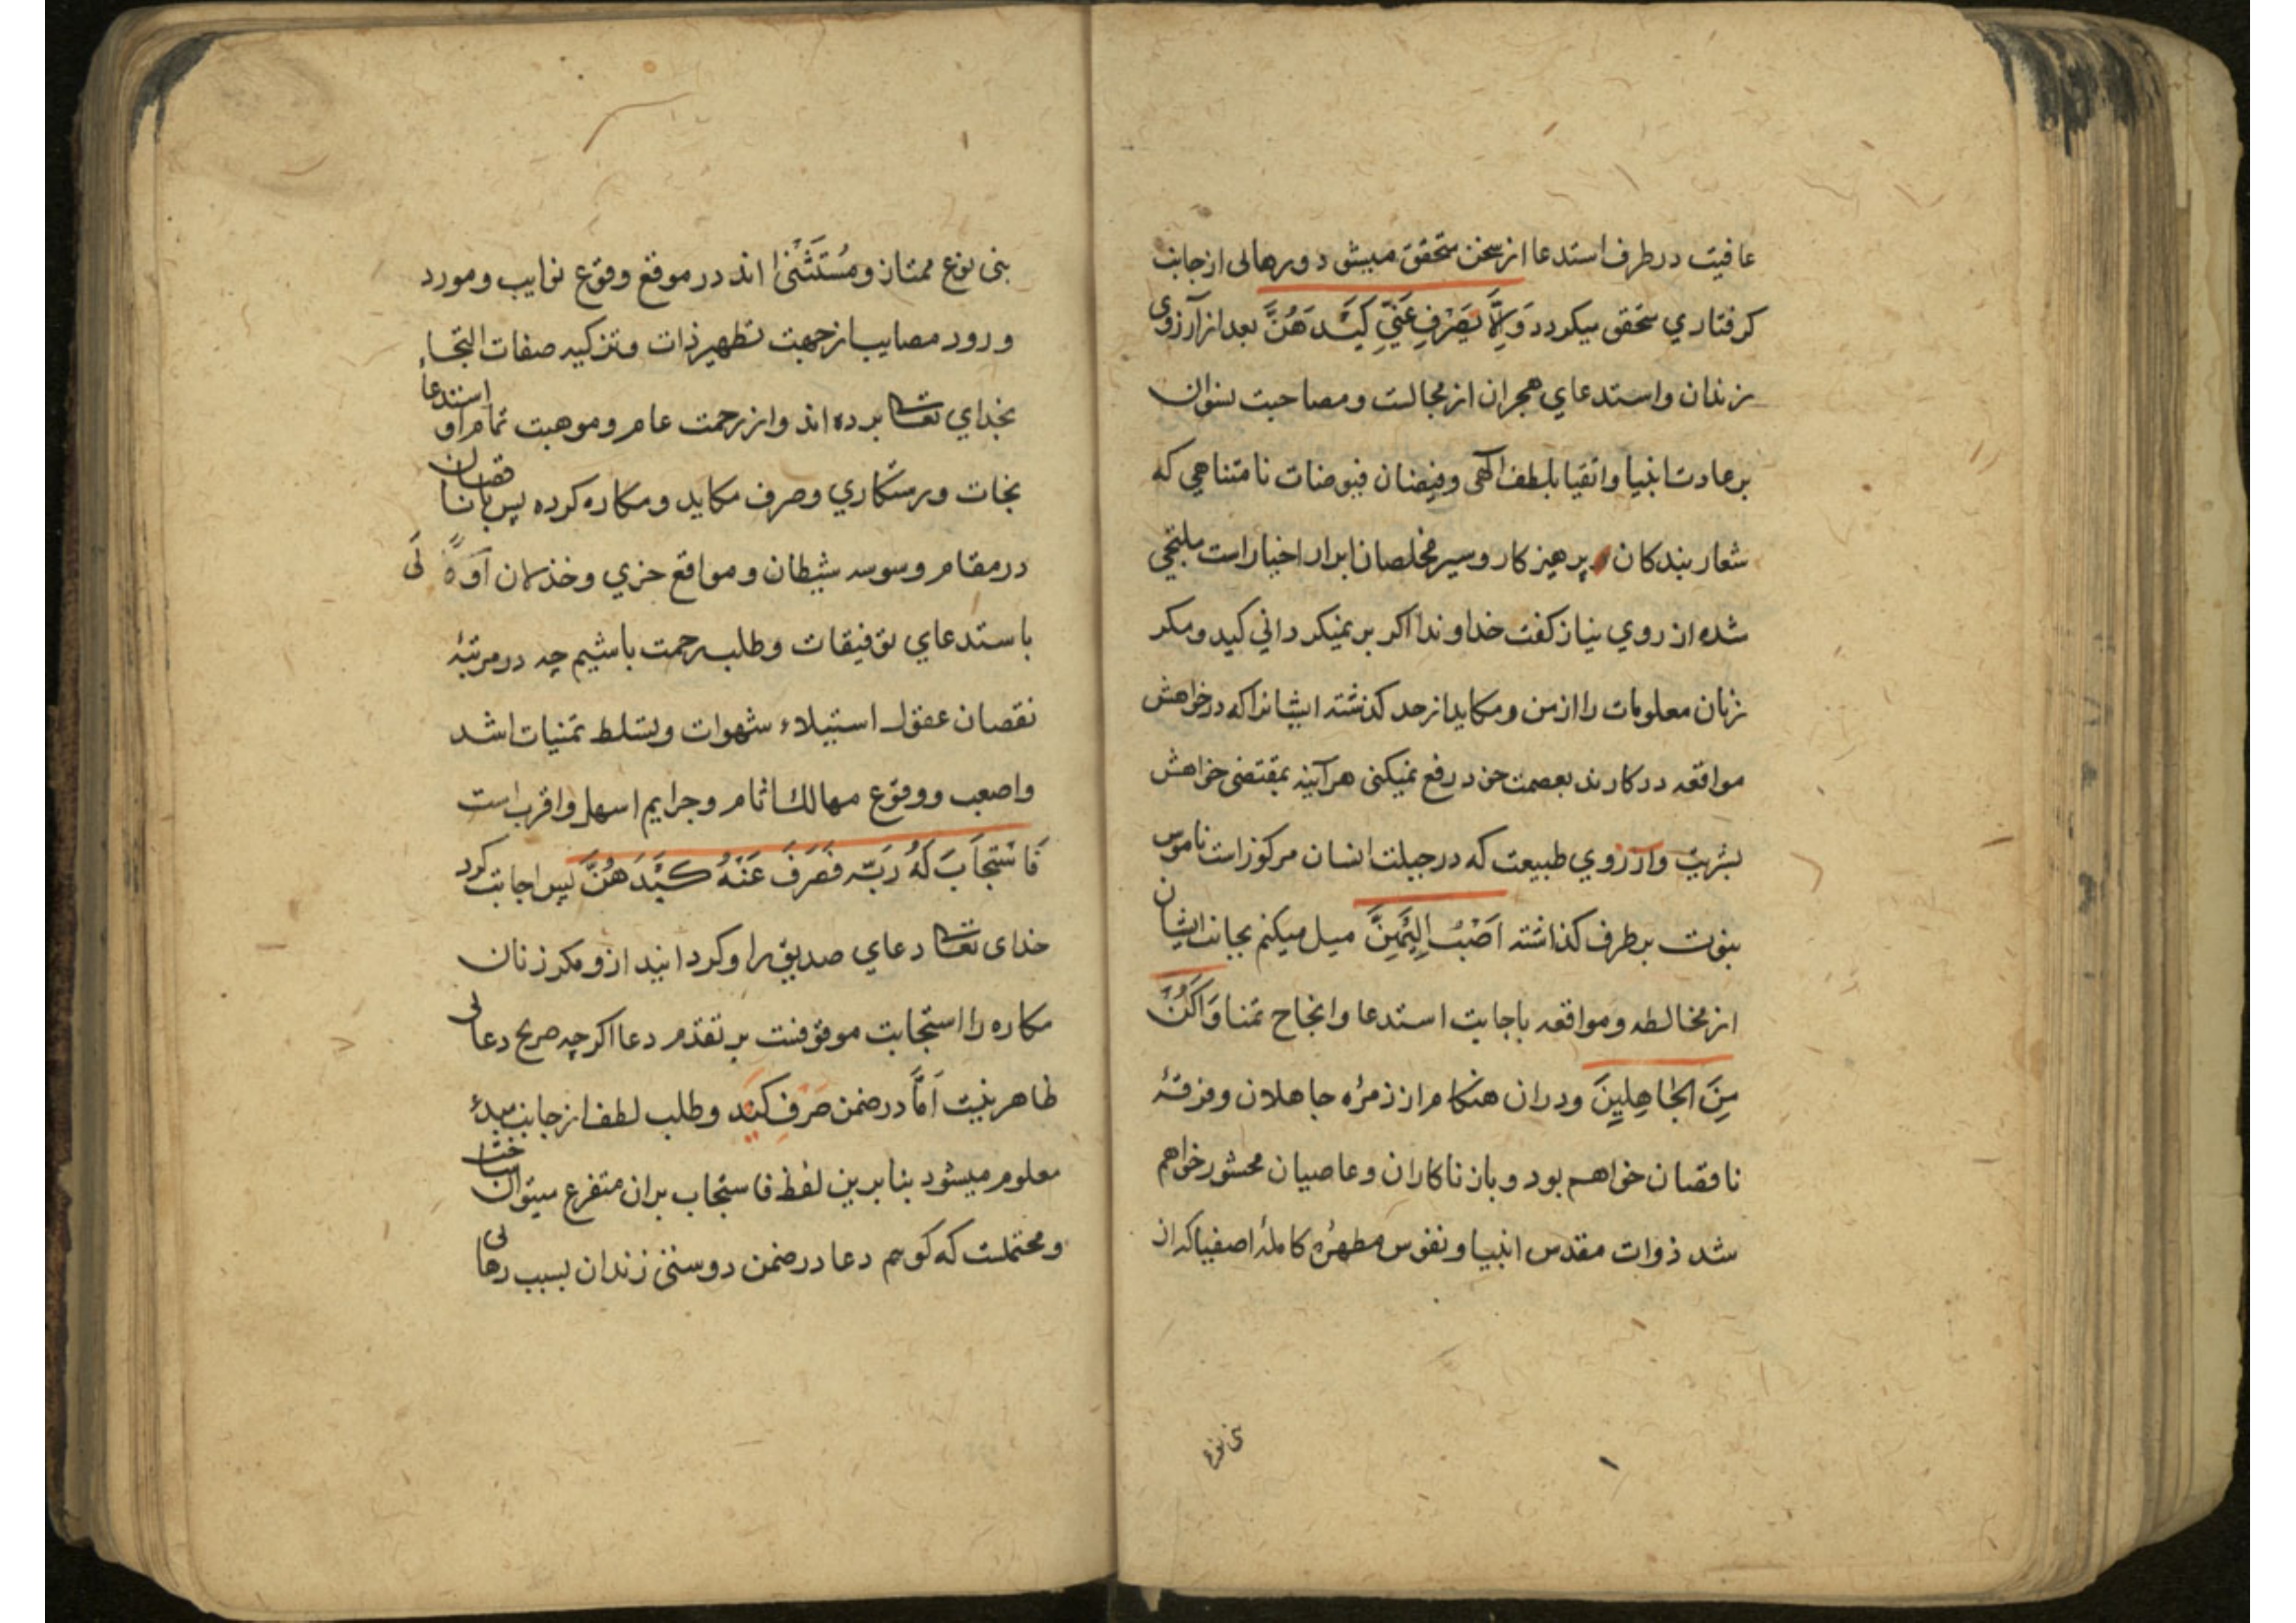 عافیت در طرف استدعا از سخن متحقق میشود و رهائی از جانب
کرفتاري متحقق میکردد وَاِلَّا تَصْرِفْ عَنّیِ کَیْدَ هُنَّ بعد از آرزوی
زندان و استدعاي هجران از مجالست و مصاحبت نسوان
بر عادت انبیا و اتقیا بلطف الهی و فیضان فیوضات نامتناهي که
شعار بندکان پرهیزکار و سیر مخلصان ابرار اخیار است ملتجي
شده از روي نیاز کفت خداوندا اکر بر نمیکرداني کید و مکر
زنان معلومات را از من و مکاید از حد کذشته ایشانرا که در خواهش
مواقعه در کارند بعصمت خود رفع نمیکنی هرآینه بمقتضی خواهش
بشریت و آرزوي طبیعت که در جبلت انسان مرکوز است ناموس
نبوت بر طرف کذاشته اَصْبُ اِلَیْهِنَّ میل میکنم بجانب ایشان
از مخالطه و مواقعه باجابت استدعا و انجاح تمنا وَاَکُنْ
مِنَ الْجَاهِلِینَ و دران هنکام از زمرهٔ جاهلان و فرقهٔ
ناقصان خواهم بود و با زناکاران و عاصیان محشور خواهم
شد ذوات مقدس انبیا و نفوس مطهرهٔ کاملهٔ اصفیا که از
بنی نوع
بنی نوع ممتاز و مُسْتَثْنَیٰ اند در موقع وقوع نوایب و مورد
ورود مصایب از جهت تطهیر ذات و تزکیه صفات التجاء
بخداي تعالی برده اند و از رحمت عام و موهبت تمام او استدعاء
نجات و رستکاري و صرف مکاید و مکاره کرده پس ما ناقصان
در مقام وسوسه شیطان و مواقع خزي و خذلان
باستدعاي توفیقات و طلب رحمت باشیم چه در مرتبهٔ
نقصان عقول استیلاء شهوات و تسلط تمنیات اشد
واصعب و وقوع مهالك اثام و جرایم اسهل و اقرب است
فَاسْتَجَابَ لَهُ رَبُّه فَصَرَفَ عَنْهُ کَیْدَ هُنَّ پس اجابت کرد
خدای تعالی دعاي صدیق را و کردانید ازو مکر زنان
مکاره را استجابت موقوفست بر تقدم دعا اکرچه صریح دعائی
ظاهر نیست اَمَّا در ضمن صَرْفِ کَیْد و طلب لطف از جانب مبدء
معلوم میشود بنابرین لفظ فاستجاب بران متفرع میتوان ساخت
و محتملست که کویم دعا در ضمن دوستی زندان بسبب رهائی